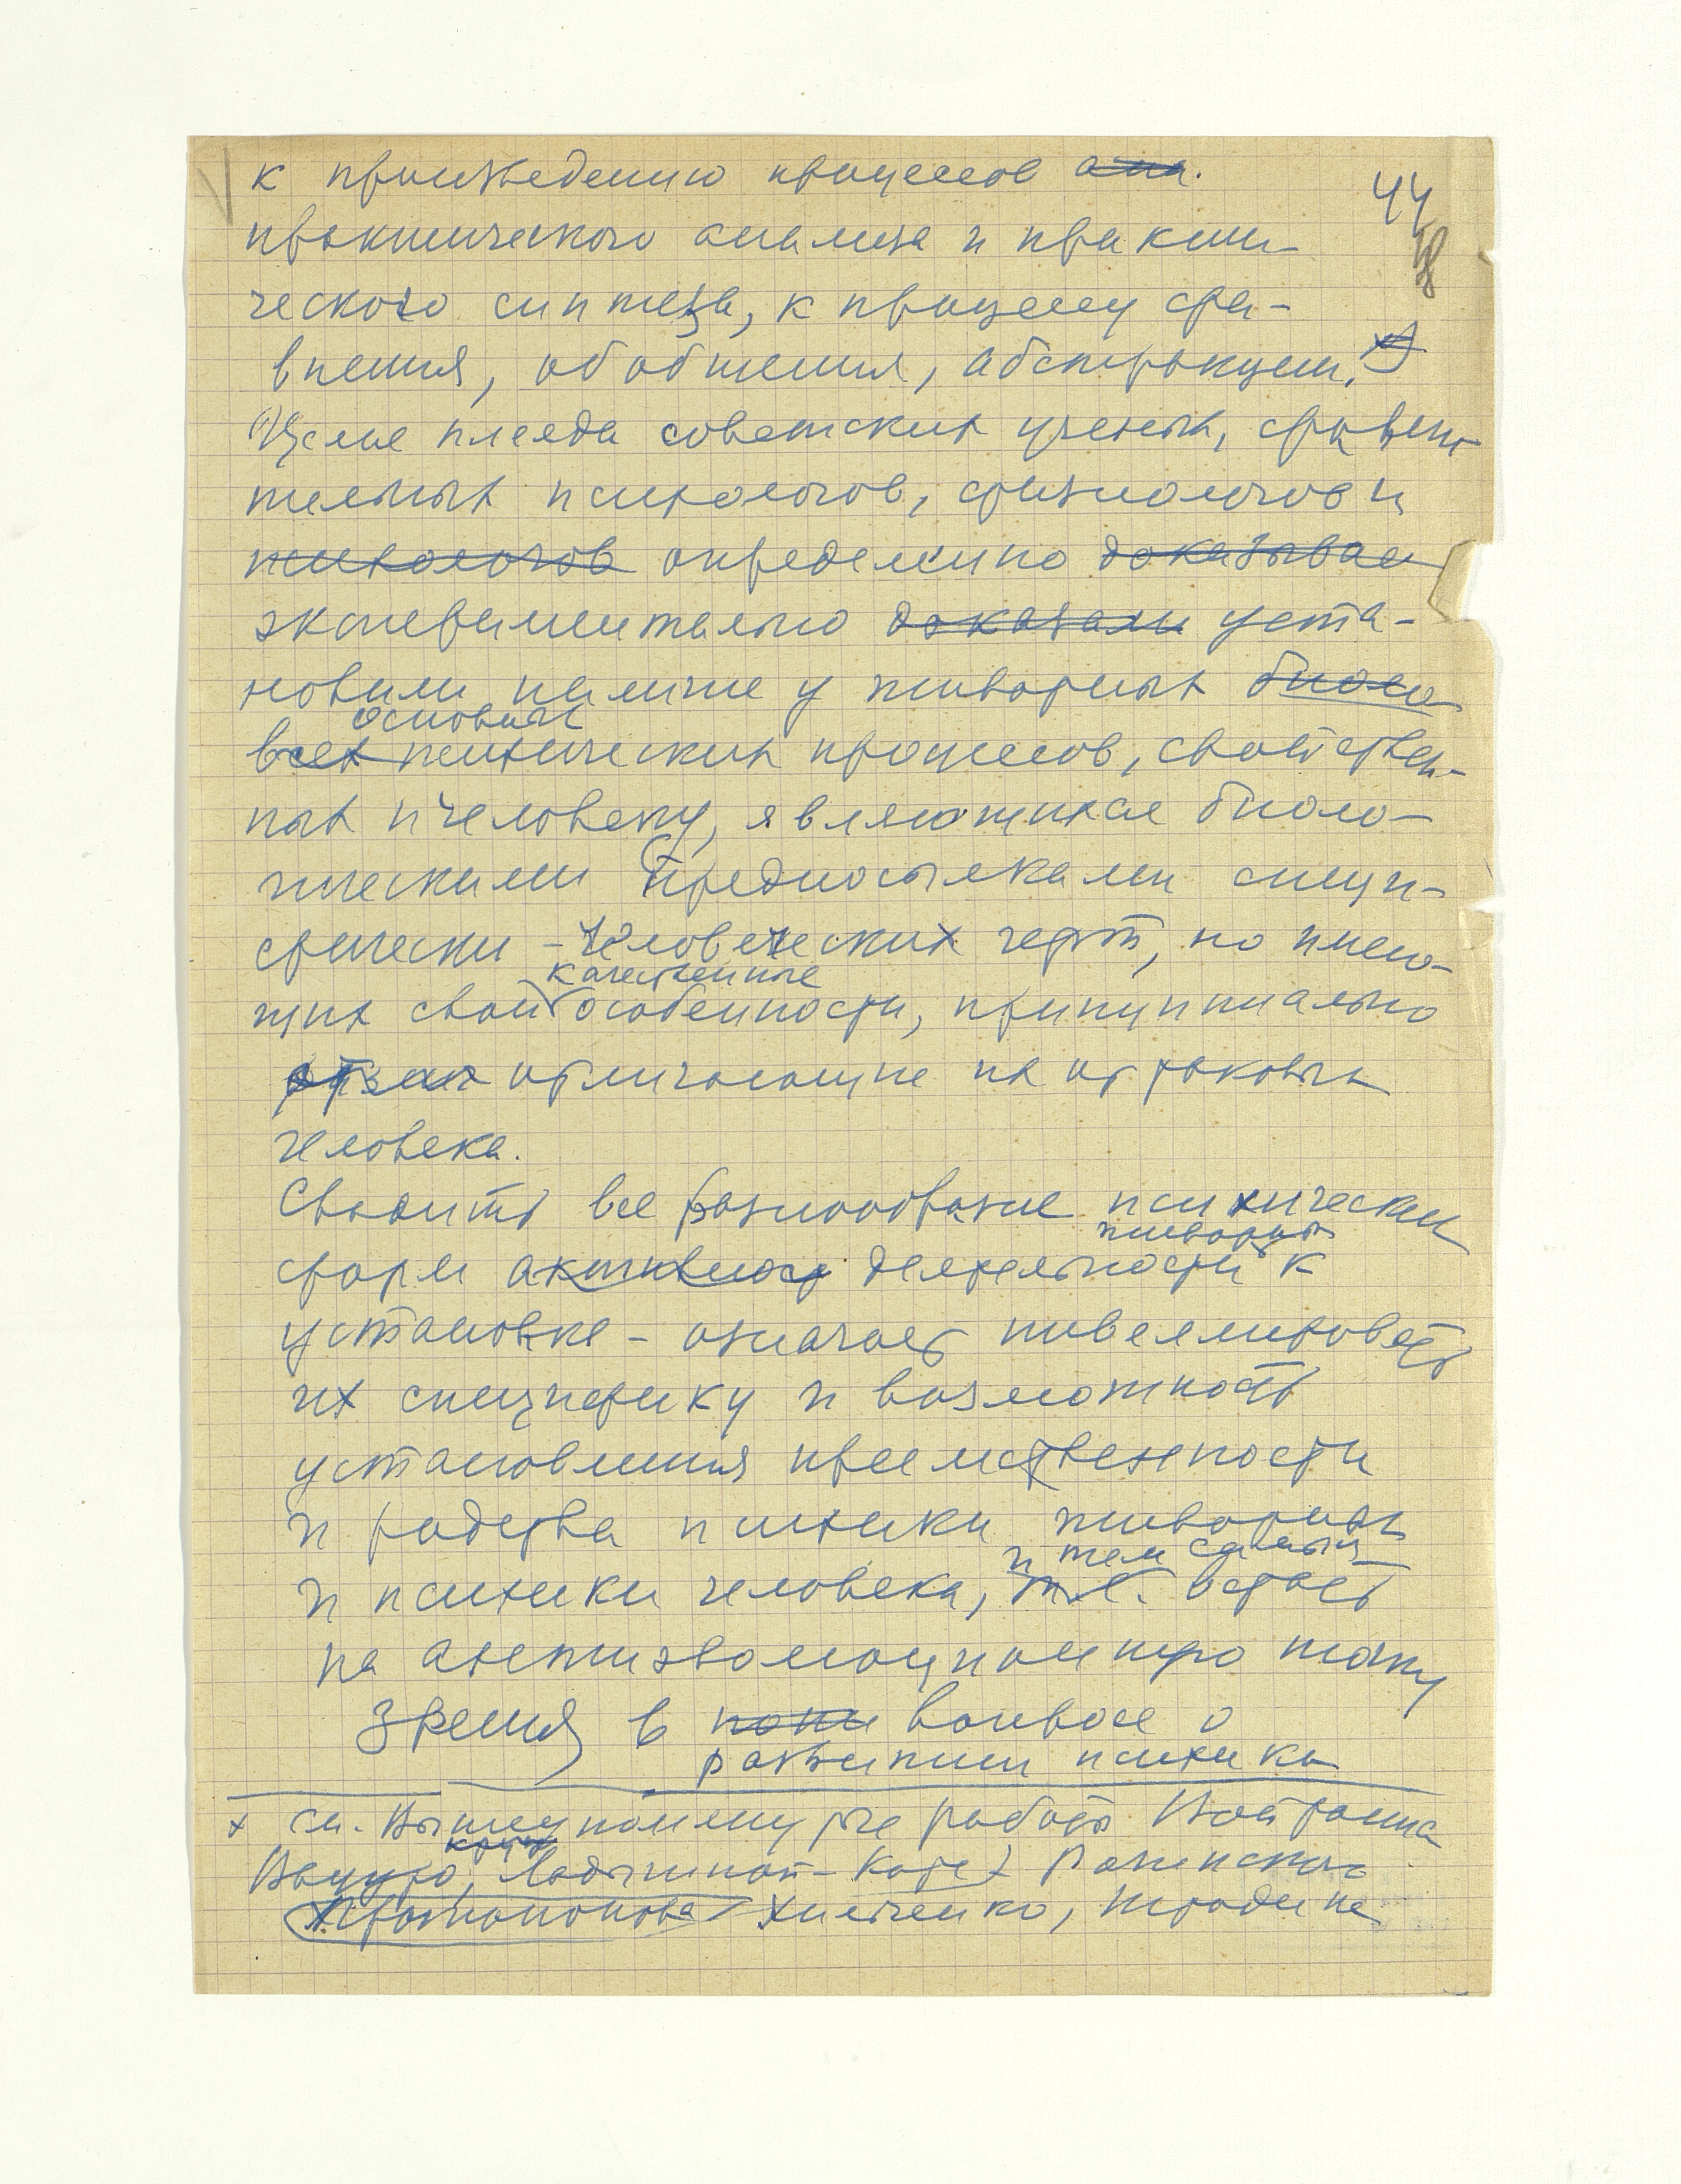 к произведению процессов ана.
44
практического анализа и практи-
ческого синтеза, к процессу сра-
внения, обобщения, абстракции. x)
Целая плеяда советских ученых, сравни-
тельных психологов, физиологов и
психологов определенно доказывае
экспериментально доказали уста-
новили наличие у животных биоло
основных
всех психических процессов, свойствен-
ных и человеку, являющихся биоло-
гическими предпосылками специ-
фически - человеческих черт, но имею-
качественные
щих свои особенности, принципиально
отличающие их от таковых
человека.
Сводить все разнообразие психических
животных
форм активност деятельности к
установке - означает нивелировать
их специфику и возможность
установления преемственности
и родства психики животных
и тем самым
и психики человека, т.е. встать
на антиэволюционную точку
зрения в вопросе о
развитии психики
x см. Вышеупомянутые работы Войтониса
Вацуро, Ладыгиной-Котс, Рогинского
Протопопова Хильченко, Штодина